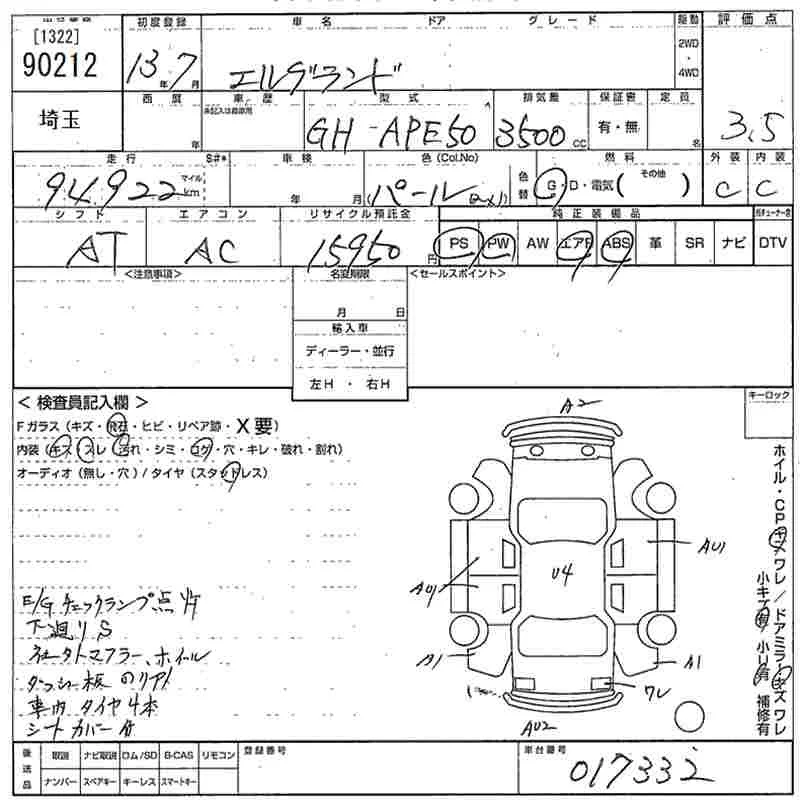 [1322]
90212
初度登録 車名 ドア グレード 駆動 評価点
13年7月 エルグランド 2WD・4WD
3.5
埼玉
西暦 車歴 型式 排気量 保証書 定員
未記入は自家用
年 GH-APE50 3500cc 有・無 名
走行 S#* 車検 色(Col.No) 燃料 外装 内装
94922 マイル km 年 月 パール(2×1) 色替 G・D・電気( その他 ) C C
シフト エアコン リサイクル預託金 純正装備品
AT AC 15950円 PS PW AW エアB ABS 革 SR ナビ DTV
<注意事項> 名変期限 <セールスポイント>
月 日
輸入車
ディーラー・並行
左H・右H
キーロック
<検査員記入欄>
Fガラス(キズ・飛石・ヒビ・リペア跡・X要)
内装(キズ・スレ・汚れ・シミ・コゲ・穴・キレ・破れ・割れ)
オーディオ(無し・穴)/タイヤ(スタッドレス)
A2
AU1
U4
AU1
A1
A1
ワレ
AU2
ホイル・CPキズワレ/ドアミラーキズワレ
小キズ有/小U有 補修有
E/Gチェックランプ点灯
下廻りS
マフラー、ホイル
ダッシュ板
車内タイヤ4本
シートカバー付
後送品 取説 ナビ取説 ロム/SD B-CAS リモコン 登録番号 車台番号
ナンバー スペアキー キーレス スマートキー 017332